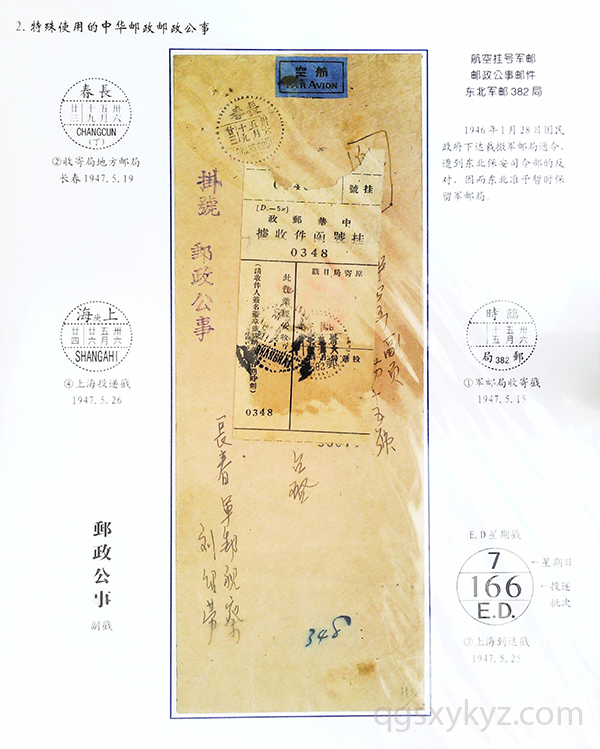 2.特殊使用的中华邮政邮政公事
航空挂号军邮
邮政公事邮件
东北军邮382局
1946年1月28日国民
政府下达裁撤军邮局通令,
遭到东北保安司令部的反
对,因而东北准予暂时保
留军邮局.
春長
廿十五卅
三九月六
CHANGCUN
(丁)
②收寄局地方邮局
长春1947.5.19
海 上
廿廿五卅
四六月六
SHANGAHI
④上海投递戳
1947.5.26
郵政公事
副戳
空航
PAR AVION
春長
廿十五卅
三九月六
掛號
郵政公事
號挂
(D.—5x)
政郵華中
據收件函號挂
0348
戳日局寄原
0348
长春軍郵視察
348
時臨
十五卅
五月六
局382郵
①军邮局收寄戳
1947.5.15
E.D星期戳
7
166
E.D.
←星期日
←投递
批次
③上海到达戳
1947.5.25
qgsxykyz.com